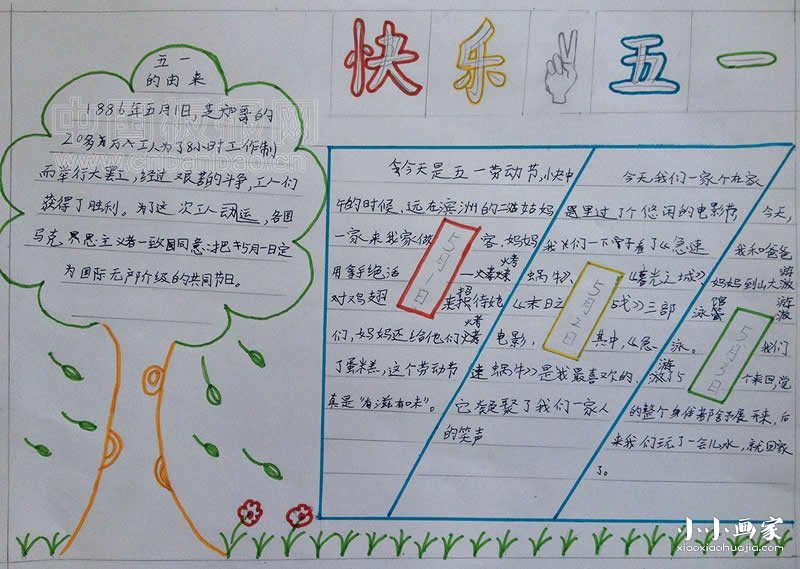 快乐 五一
五一
的由来
1886年五月1日,芝加哥的
20多万工人为了8小时工作制
而举行大罢工,经过艰苦的斗争,工人们
获得了胜利。为了这次工人运动,各国
马克思主义者一致同意:把5月1日定
为国际无产阶级的共同节日。
今天是五一劳动节,小中
午的时候、远在滨洲的二姑姑妈
一家来我家做客,妈妈
用拿手绝活——烤
对鸡翅来招待他
们,妈妈还给他们烤
了蛋糕,这个劳动节
真是“有滋有味”。
5月1日
今天,我们一家个在家
里过了个悠闲的电影节
我们一下子看了《急速
蜗牛》、《曙光之城》
《末日之战》三部
电影,其中,《急
速蜗牛》是我最喜欢的,
它凝聚了我们一家人
的笑声
5月2日
今天,
我和爸爸
妈妈到山大游
泳馆游
泳。我们
游了5个来回,觉
的整个身体都舒展开来,后
来我们玩了一会儿水,就回家
了。
5月3日
中国板报网
小小画家
xiaoxiaohuajia.com